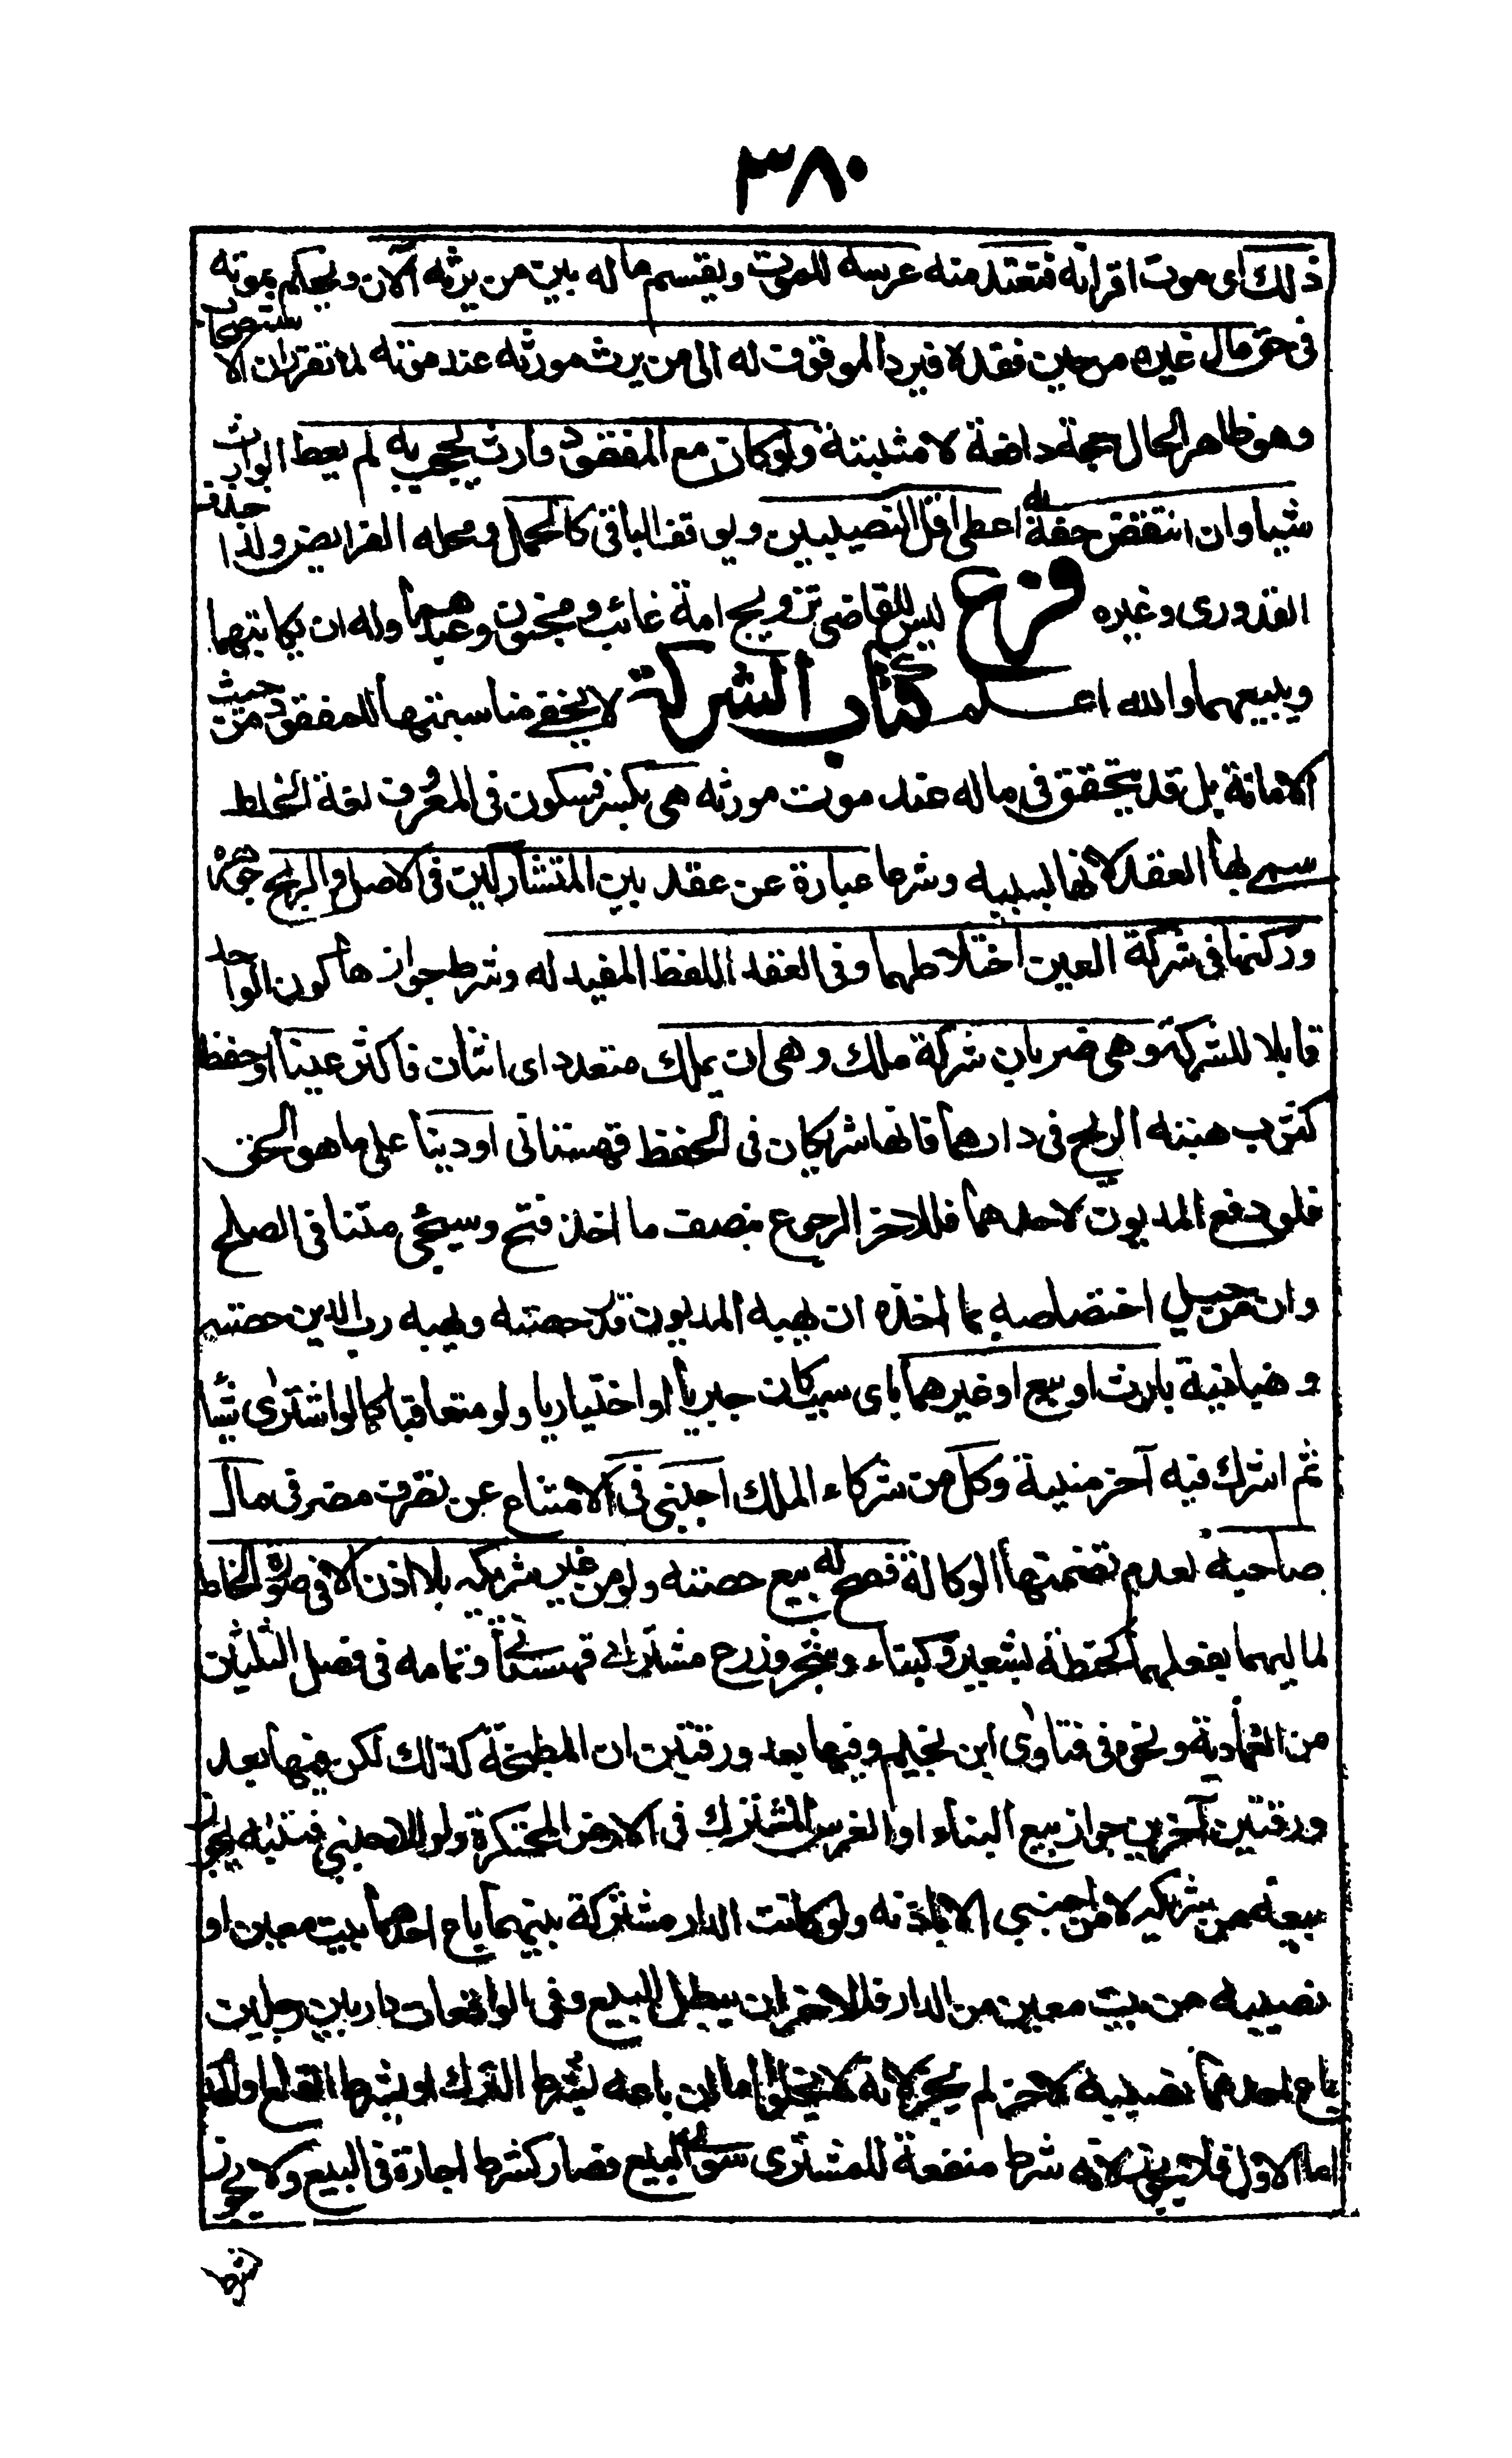 ٣٨٠
ذلك اى موت اقرانه فتعتد منه عرسه للموت ويقسم ماله بين من يرثه الآن ويحكم بموته
فى حق مال غيره من حين فقده فيرد الموقوف له الى من يرث مورثه عند موته لما تقرر ان الاستصحاب
وهو ظاهر الحال حجة دافعة لا مثبتة ولو كان مع المفقود وارث يحجب به لم يعط الوارث
شيا وان انتقض حقه به اعطى اقل النصيبين ويوقف الباقى كالحمل ومحله الفرايض ولذا حذفه
القدورى وغيره فرع ليس للقاضى تزويج امة غائب ومجنون وعبدهما وله ان يكاتبهما
ويبيعهما والله اعلم كتاب الشركة لا يخفى مناسبتها للمفقود من حيث
الامانة بل قد تحقق فى ماله عند موت مورثه هى بكسر فسكون فى المعروف لغة الخلط
سمى بها العقد لانها بسببه وشرعا عبارة عن عقد بين المتشاركين فى الاصل والربح جوهرة
وركنها فى شركة العين اختلاطهما وفى العقد اللفظ المفيد له وشرط جوازها كون الواحد
قابلا للشركة وهى ضربان شركة ملك وهى ان يملك متعدد اى اثنان فاكثر عينا او حفظا
كثوب هبته الريح فى دارهما فانهما شريكان فى الحفظ قهستانى او دينا على ما هو الحق
فلو دفع المديون لاحدهما فللاخر الرجوع بنصف ما اخذ فتح وسيجئ متنا فى الصلح
وان من حيل اختصاصه بما اخذه ان يهبه المديون قدر حصته ويهبه رب الدين حصته
وهبانية بارث او بيع او غيرهما باى سبب كان جبريا او اختياريا ولو متعاقبا كما لو اشترى شيئا
ثم اشرك فيه آخر منية وكل من شركاء الملك اجنبى فى الامتناع عن تصرف مضر فى مال
صاحبه لعدم تضمنها الوكالة فصح له بيع حصته ولو من غير شريكه بلا اذن الا فى صورة الخلط
لماليهما بفعلهما كحنطة بشعير وكبناء وشجر وزرع مشترك قهستانى وتمامه فى فصل الثلثين
من العمادية ونحوه فى فتاوى ابن نجيم وفيها بعد ورقتين ان المبطخة كذلك لكن فيها بعد
ورقتين آخرين جواز بيع البناء او الغرس المشترك فى الارض المحتكرة ولو للاجنبى فتنبه يجوز
بيعه من شريكه لا من اجنبى الا باذنه ولو كانت الدار مشتركة بينهما باع احدهما بيت معين او
نصيبه من بيت معين من الدار فللاخر ان يبطل البيع وفى الواقعات دار بين رجلين
باع احدهما نصيبه لاخر لم يجز لانه لا يخلو اما ان باعه بشرط الترك او بشرط القلع او الهدم
اما الاول فلا يجوز لانه شرط منفعة للمشترى سوى البيع فصار كشرط اجارة فى البيع ولا يجوز
شرط